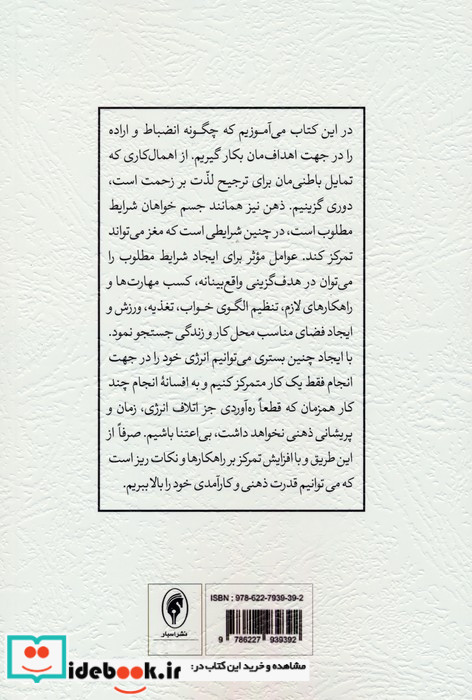 در این کتاب می‌آموزیم که چگونه انضباط و اراده
را در جهت اهداف‌مان بکار گیریم. از اهمال‌کاری که
تمایل باطنی‌مان برای ترجیح لذّت بر زحمت است،
دوری گزینیم. ذهن نیز همانند جسم خواهان شرایط
مطلوب است، در چنین شرایطی است که مغز می‌تواند
تمرکز کند. عوامل مؤثر برای ایجاد شرایط مطلوب را
می‌توان در هدف‌گزینی واقع‌بینانه، کسب مهارت‌ها و
راهکارهای لازم، تنظیم الگوی خواب، تغذیه، ورزش و
ایجاد فضای مناسب محل کار و زندگی جستجو نمود.
با ایجاد چنین بستری می‌توانیم انرژی خود را در جهت
انجام فقط یک کار متمرکز کنیم و به افسانهٔ انجام چند
کار همزمان که قطعاً ره‌آوردی جز اتلاف انرژی، زمان و
پریشانی ذهنی نخواهد داشت، بی‌اعتنا باشیم. صرفاً از
این طریق و با افزایش تمرکز بر راهکارها و نکات ریز است
که می توانیم قدرت ذهنی و کارآمدی خود را بالا ببریم.
ISBN : 978-622-7939-39-2
9 786227 939392
نشر اسبار
مشاهده و خرید این کتاب در:
idebook.ir